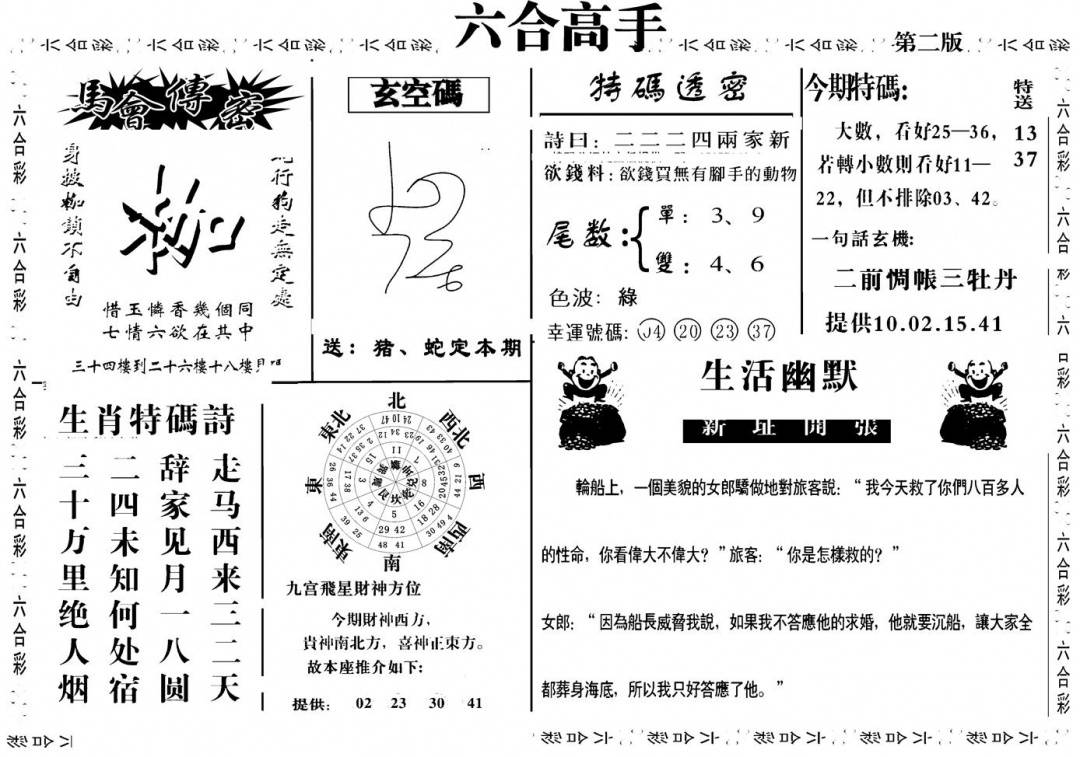 六合高手
第二版
馬會傳密
身披枷鎖不自由
行狗走無定處
惜玉憐香幾個同
七情六欲在其中
三十四樓到二十六樓十八樓見
玄空碼
送：猪、蛇定本期
特碼透密
詩曰：二二二四兩家新
欲錢料：欲錢買無有腳手的動物
尾数：
單：3、9
雙：4、6
色波：綠
幸運號碼：04 20 23 37
今期特碼：
特送
13
37
大數，看好25—36，
若轉小數則看好11—
22，但不排除03、42。
一句話玄機：
二前惆帳三牡丹
提供10.02.15.41
生肖特碼詩
走马西来三二天
辞家见月一八圆
二四未知何处宿
三十万里绝人烟
北
西北
西
西南
南
東南
東
東北
九宫飛星財神方位
今期財神西方，
貴神南北方，喜神正東方。
故本座推介如下：
提供： 02 23 30 41
生活幽默
新址開張
輪船上，一個美貌的女郎驕做地對旅客說：“我今天救了你們八百多人
的性命，你看偉大不偉大？”旅客：“你是怎樣救的？”
女郎：“因為船長威脅我說，如果我不答應他的求婚，他就要沉船，讓大家全
都葬身海底，所以我只好答應了他。”
六合彩